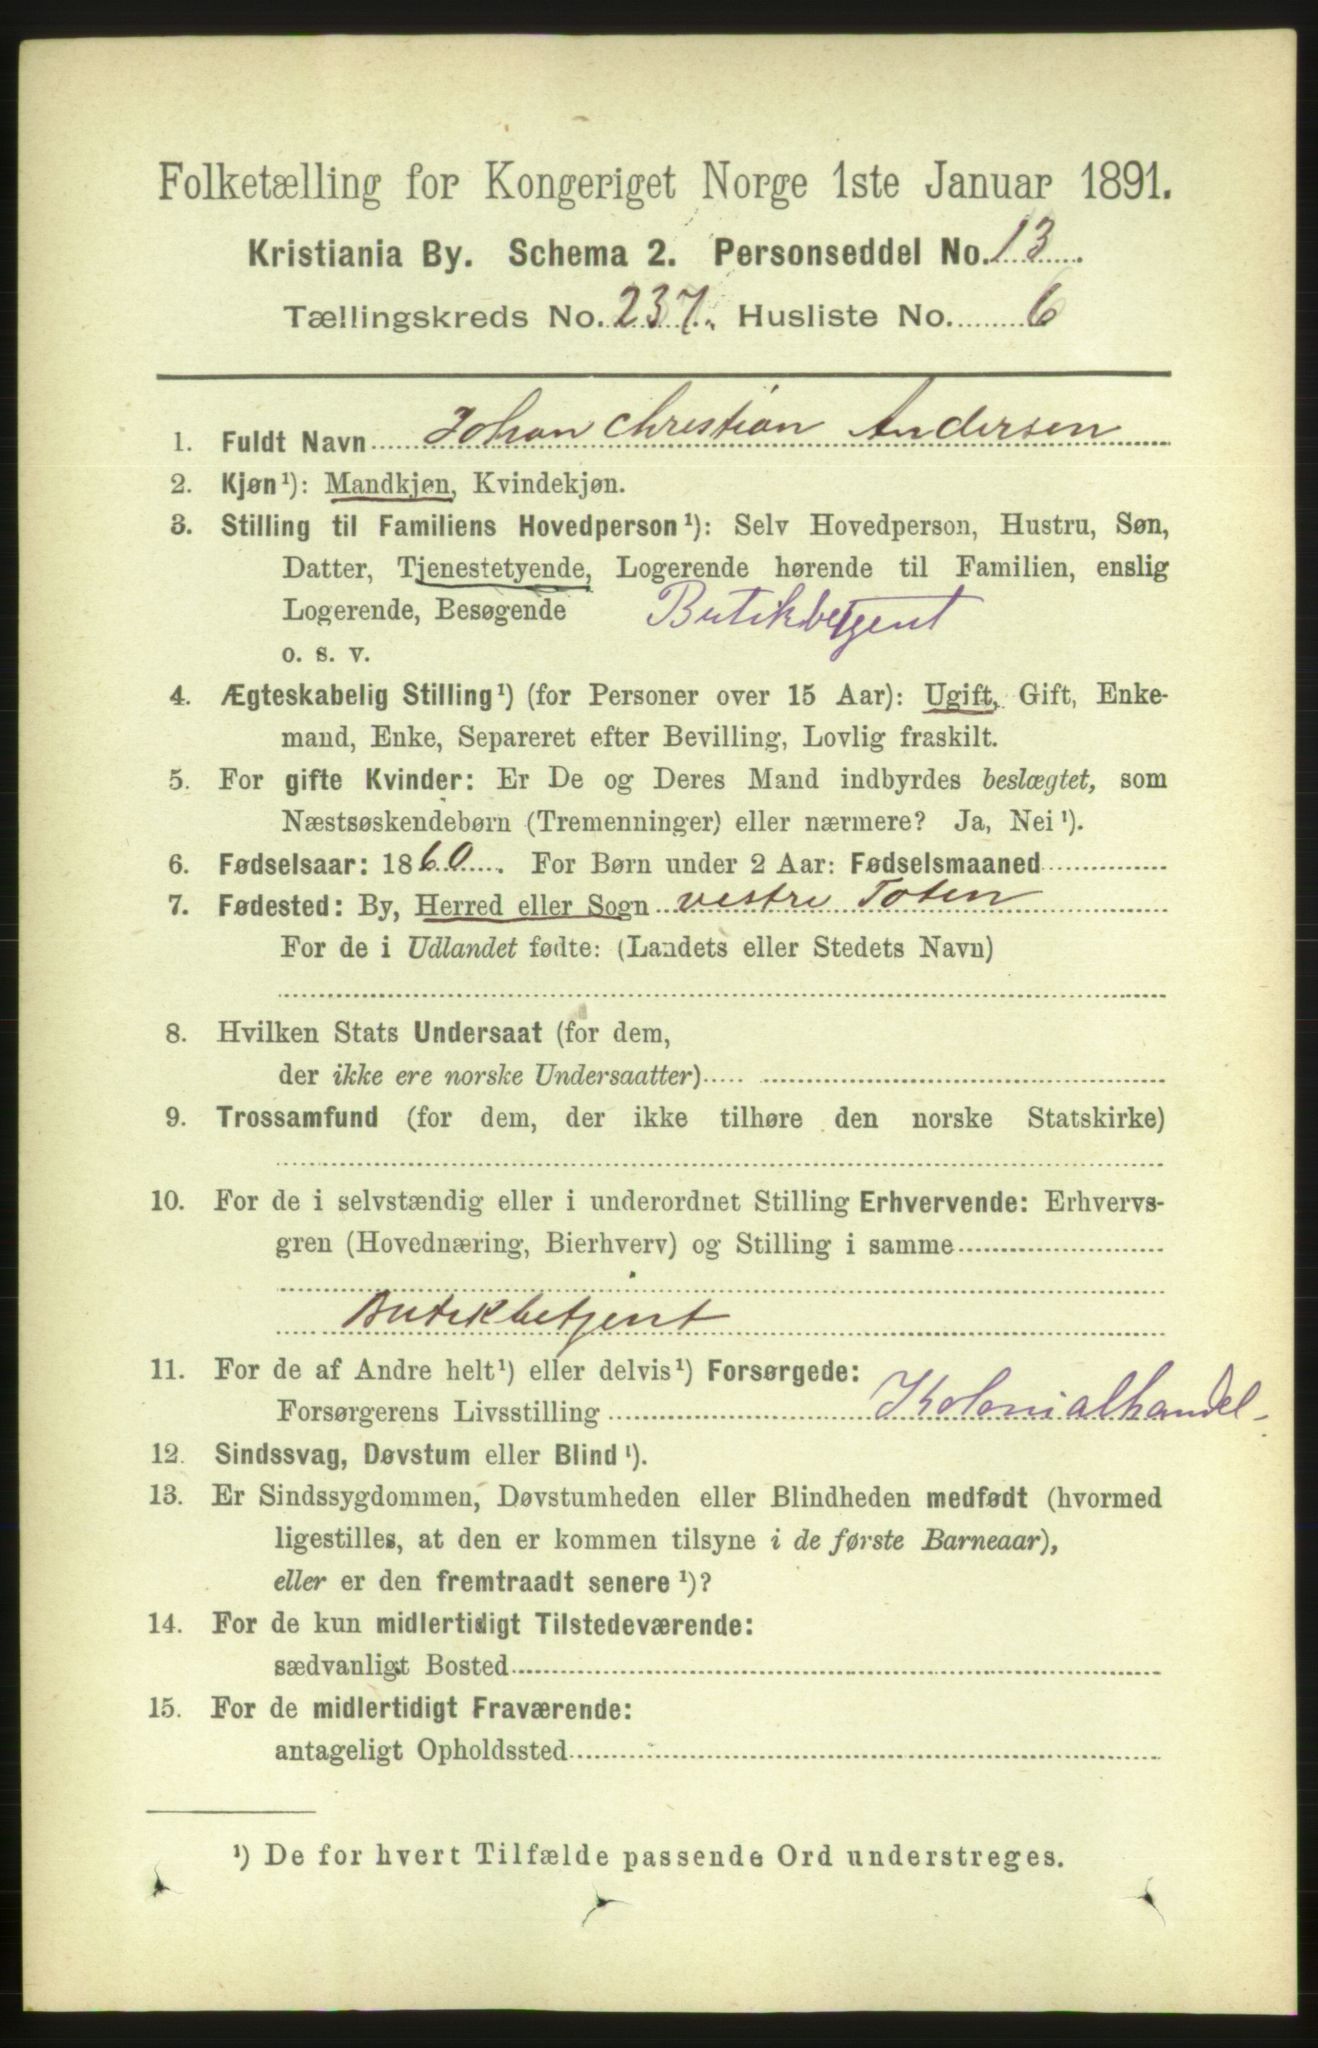 Folketælling for Kongeriget Norge 1ste Januar 1891.
Kristiania By. Schema 2. Personseddel No. 13.
Tællingskreds No. 237. Husliste No. 6
1. Fuldt Navn Johan Christian Andersen
2. Kjøn¹): Mandkjøn, Kvindekjøn.
3. Stilling til Familiens Hovedperson¹): Selv Hovedperson, Hustru, Søn,
Datter, Tjenestetyende, Logerende hørende til Familien, enslig
Logerende, Besøgende Butikbetjent
o. s. v.
4. Ægteskabelig Stilling¹) (for Personer over 15 Aar): Ugift, Gift, Enke-
mand, Enke, Separeret efter Bevilling, Lovlig fraskilt.
5. For gifte Kvinder: Er De og Deres Mand indbyrdes beslægtet, som
Næstsøskendebørn (Tremenninger) eller nærmere? Ja, Nei¹).
6. Fødselsaar: 1860. For Børn under 2 Aar: Fødselsmaaned
7. Fødested: By, Herred eller Sogn vestre Toten
For de i Udlandet fødte: (Landets eller Stedets Navn)
8. Hvilken Stats Undersaat (for dem,
der ikke ere norske Undersaatter)
9. Trossamfund (for dem, der ikke tilhøre den norske Statskirke)
10. For de i selvstændig eller i underordnet Stilling Erhvervende: Erhvervs-
gren (Hovednæring, Bierhverv) og Stilling i samme
Butikbetjent
11. For de af Andre helt¹) eller delvis¹) Forsørgede:
Forsørgerens Livsstilling Kolonialhandel
12. Sindssvag, Døvstum eller Blind¹).
13. Er Sindssygdommen, Døvstumheden eller Blindheden medfødt (hvormed
ligestilles, at den er kommen tilsyne i de første Barneaar),
eller er den fremtraadt senere¹)?
14. For de kun midlertidigt Tilstedeværende:
sædvanligt Bosted
15. For de midlertidigt Fraværende:
antageligt Opholdssted
¹) De for hvert Tilfælde passende Ord understreges.